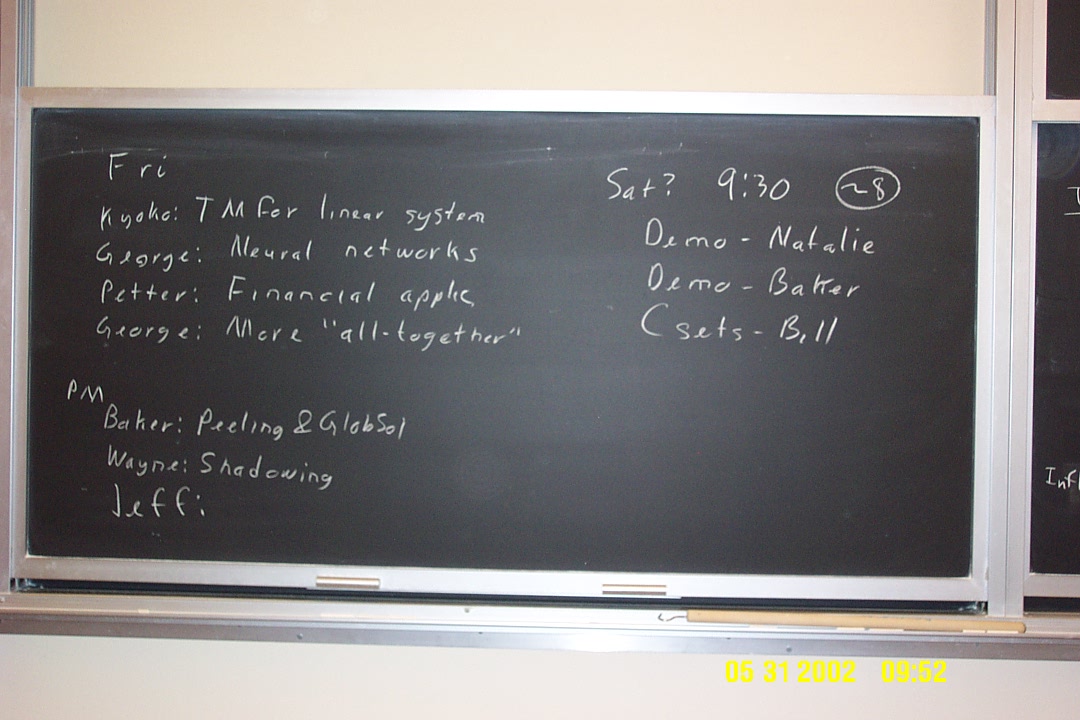 Fri
Kyoko: TM for linear system
George: Neural networks
Petter: Financial applic
George: More "all-together"
PM
Baker: Peeling & GlobSol
Wayne: Shadowing
Jeff:
Sat? 9:30 ~8
Demo - Natalie
Demo - Baker
Csets - Bill
Infl
05 31 2002 09:52